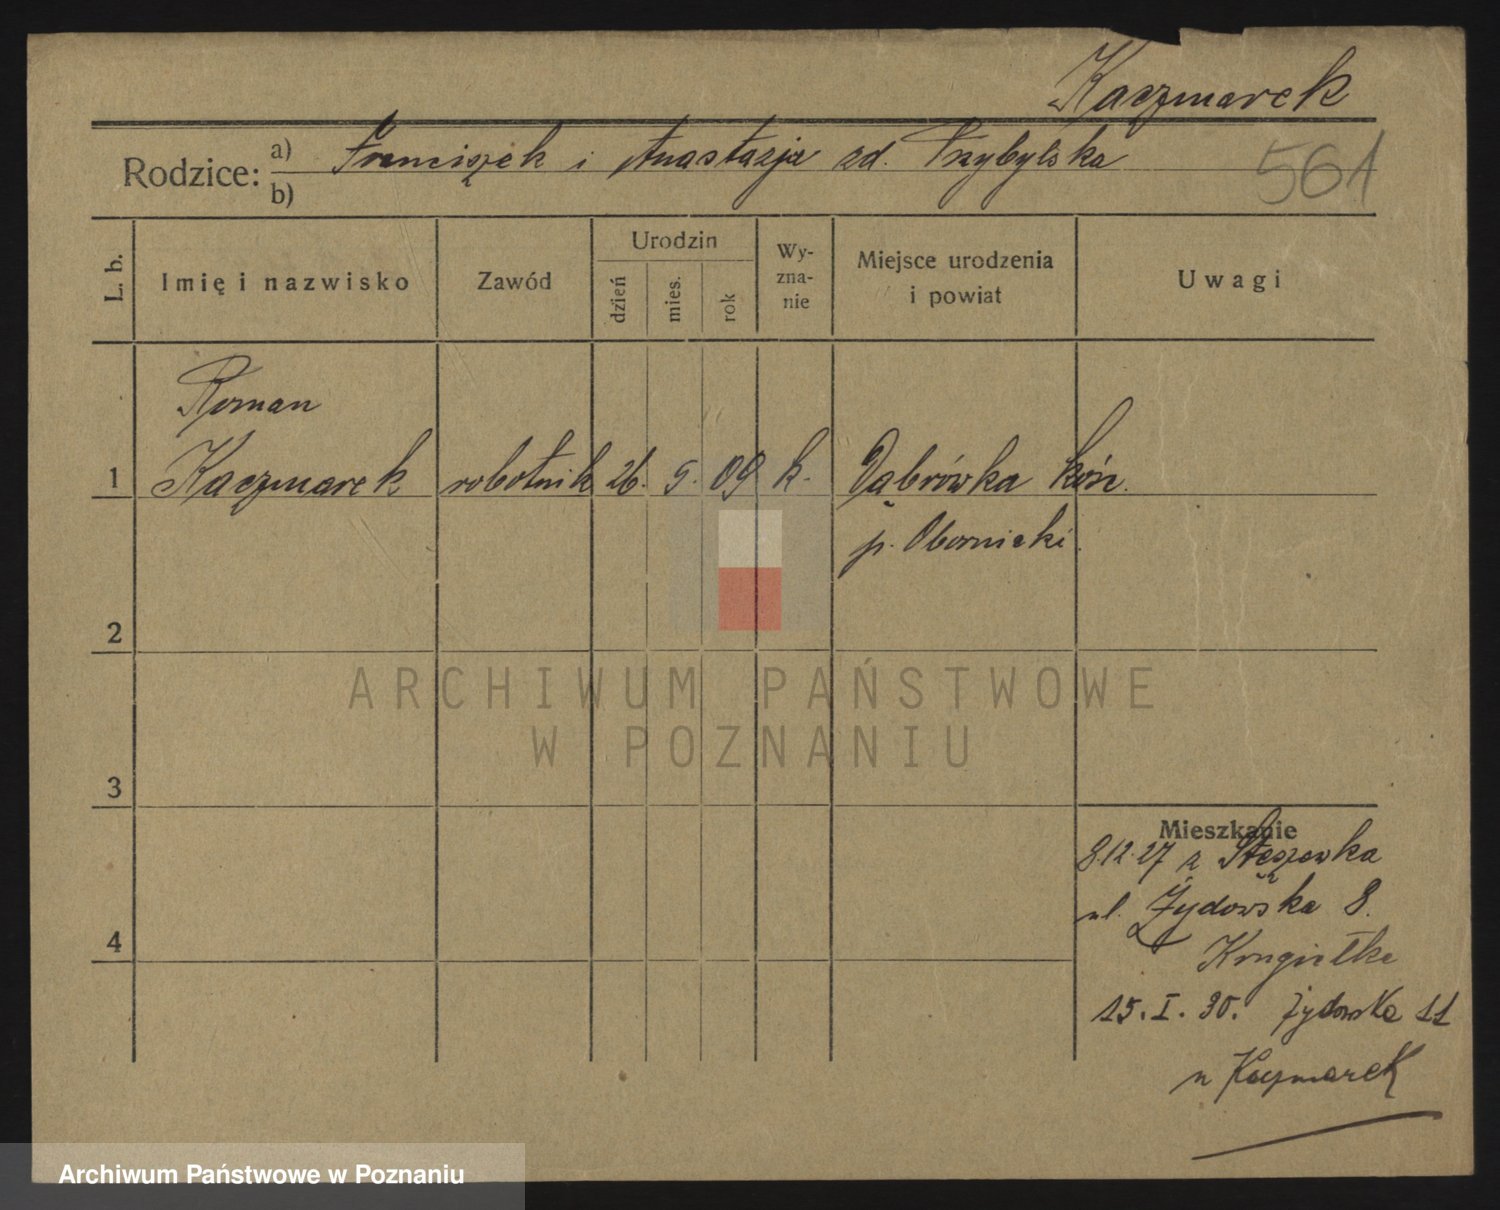 Kaczmarek
Rodzice: a) Franciszek i Anastazja zd. Przybylska
b)
561
L. b.
Imię i nazwisko
Zawód
Urodzin
dzień
mies.
rok
Wy-
zna-
nie
Miejsce urodzenia
i powiat
Uwagi
Roman
1 Kaczmarek robotnik 26. 5. 09 k. Dąbrówka kośc.
p. Obornicki.
2
ARCHIWUM PAŃSTWOWE
W POZNANIU
3
Mieszkanie
8.12.27 z Stęszewka
ul. Żydowska 8.
4
15. I. 30. Żydowska 11
u Kaczmarek
Archiwum Państwowe w Poznaniu